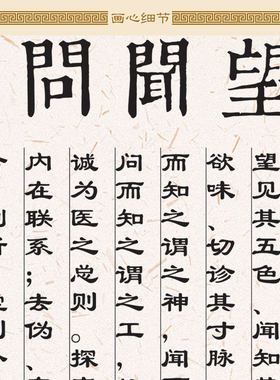 画心细节
望聞問
望见其五色、闻知
欲味、切诊其寸脉
而知之谓之神，闻
问而知之谓之工，
诚为医之总则。探
内在联系；去伪、